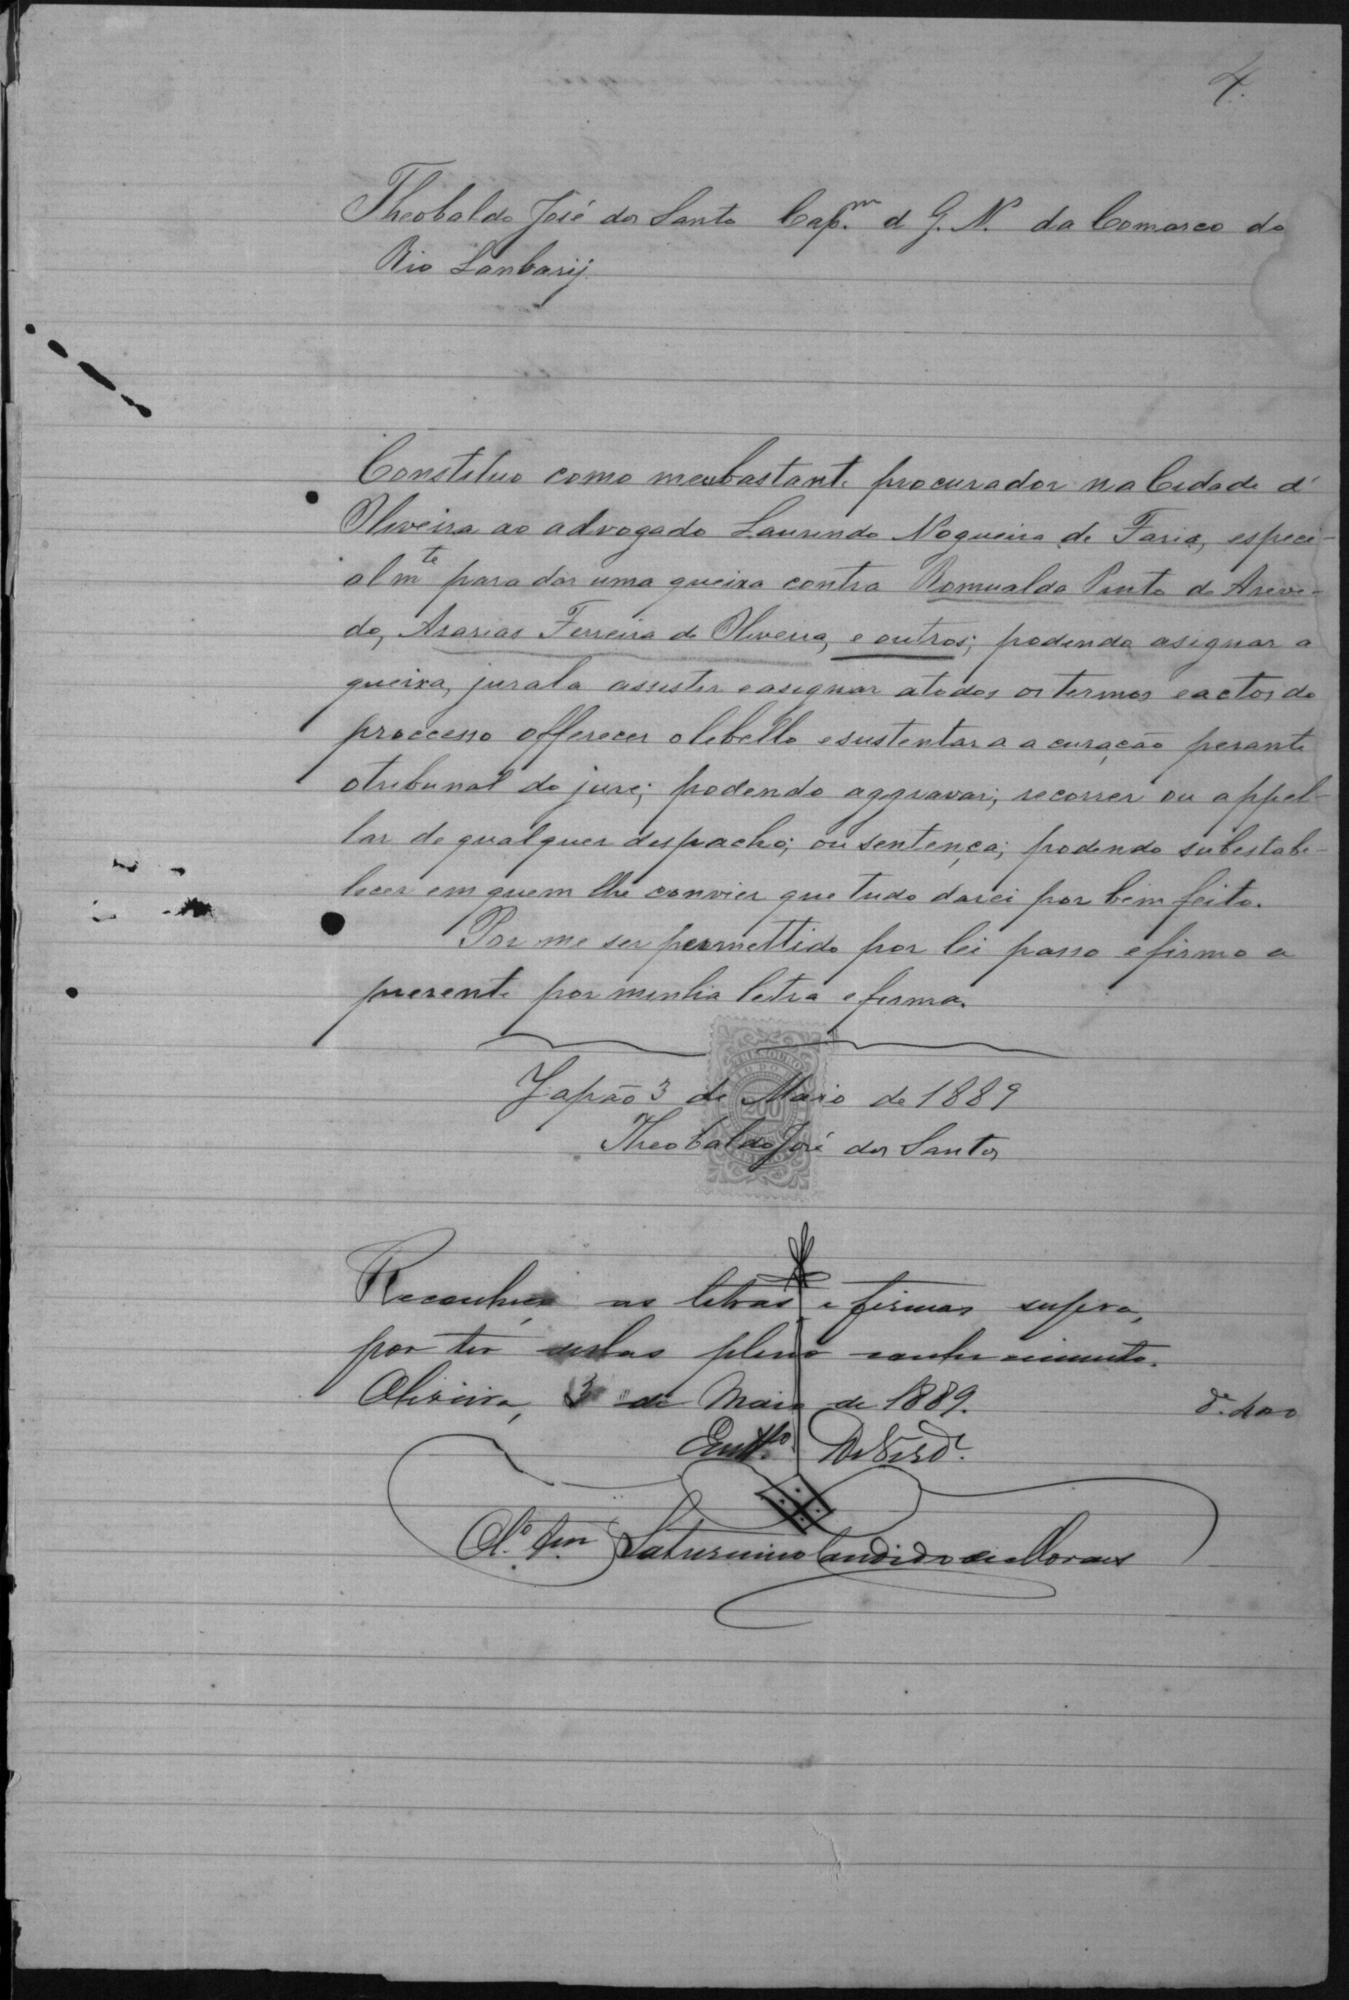 4.
Theobaldo José dos Santo Cap.m d G. N. da Comarca do
Rio Lambary
Constituo como meubastante procurador na Cidade d'
Oliveira ao advogado Laurindo Nogueira de Faria, especi-
almte para dar uma queixa contra Romualdo Pinto de Azeve-
do, Azarias Ferreira de Oliveira, e outros; podendo asignar a
queixa, jurala assistir easignar atodos os termos eactos do
processo offerecer olibello esustentar a acuração perante
otribunal do jury; podendo aggravar; recorrer ou appel-
lar de qualquer despacho; ou sentença; podendo subestabe-
lecer em quem lhe convier que tudo darei por bem feito.
Por me ser permettido por lei passo efirmo a
presente por minha letra e firma.
Japão 3 de Maio de 1889
THESOURO
200
Theobaldo José dos Santos
Reconheço as letras e firmas supra,
por ter dellas pleno conhecimento.
Oliveira, 3 de Maio de 1889.
Em tto. da verd.e
Saturnino Candido de Moraes